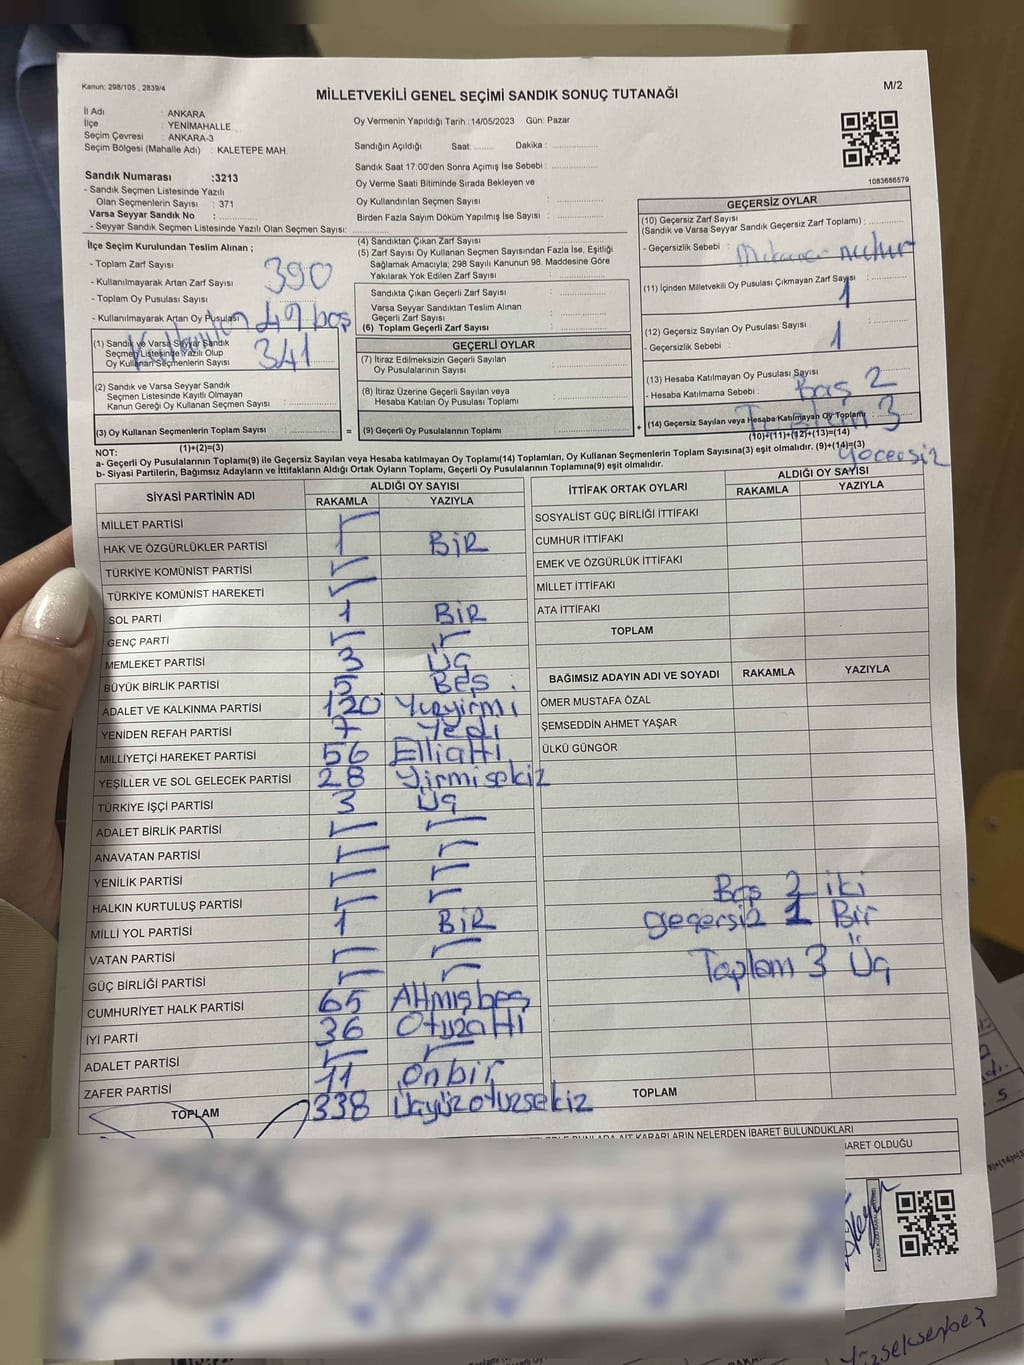 Kanun: 298/105 , 2839/4
M/2
MİLLETVEKİLİ GENEL SEÇİMİ SANDIK SONUÇ TUTANAĞI
İl Adı : ANKARA
İlçe : YENİMAHALLE
Seçim Çevresi : ANKARA-3
Seçim Bölgesi (Mahalle Adı) : KALETEPE MAH.
Sandık Numarası :3213
- Sandık Seçmen Listesinde Yazılı
Olan Seçmenlerin Sayısı : 371
Varsa Seyyar Sandık No :
- Seyyar Sandık Seçmen Listesinde Yazılı Olan Seçmen Sayısı:
Oy Vermenin Yapıldığı Tarih :14/05/2023 Gün: Pazar
Sandığın Açıldığı Saat: Dakika :
Sandık Saat 17:00'den Sonra Açımış İse Sebebi :
Oy Verme Saati Bitiminde Sırada Bekleyen ve
Oy Kullandırılan Seçmen Sayısı :
Birden Fazla Sayım Döküm Yapılmış İse Sayısı :
1083666579
İlçe Seçim Kurulundan Teslim Alınan ;
- Toplam Zarf Sayısı
- Kullanılmayarak Artan Zarf Sayısı : 390
- Toplam Oy Pusulası Sayısı
- Kullanılmayarak Artan Oy Pusulası 49 boş
(1) Sandık ve Varsa Seyyar Sandık
Seçmen Listesinde Yazılı Olup
Oy Kullanan Seçmenlerin Sayısı 341
(2) Sandık ve Varsa Seyyar Sandık
Seçmen Listesinde Kayıtlı Olmayan
Kanun Gereği Oy Kullanan Seçmen Sayısı :
(3) Oy Kullanan Seçmenlerin Toplam Sayısı :
(4) Sandıktan Çıkan Zarf Sayısı :
(5) Zarf Sayısı Oy Kullanan Seçmen Sayısından Fazla İse, Eşitliği
Sağlamak Amacıyla; 298 Sayılı Kanunun 98. Maddesine Göre
Yakılarak Yok Edilen Zarf Sayısı :
Sandıkta Çıkan Geçerli Zarf Sayısı :
Varsa Seyyar Sandıktan Teslim Alınan
Geçerli Zarf Sayısı :
(6) Toplam Geçerli Zarf Sayısı :
GEÇERLİ OYLAR
(7) İtiraz Edilmeksizin Geçerli Sayılan
Oy Pusulalarının Sayısı :
(8) İtiraz Üzerine Geçerli Sayılan veya
Hesaba Katılan Oy Pusulası Toplamı :
= (9) Geçerli Oy Pusulalarının Toplamı :
GEÇERSİZ OYLAR
(10) Geçersiz Zarf Sayısı
(Sandık ve Varsa Seyyar Sandık Geçersiz Zarf Toplamı) :
- Geçersizlik Sebebi :
(11) İçinden Milletvekili Oy Pusulası Çıkmayan Zarf Sayısı : 1
(12) Geçersiz Sayılan Oy Pusulası Sayısı :
- Geçersizlik Sebebi : 1
(13) Hesaba Katılmayan Oy Pusulası Sayısı :
- Hesaba Katılmama Sebebi : Boş 2
+ (14) Geçersiz Sayılan veya Hesaba Katılmayan Oy Toplamı : Toplam 3
(10)+(11)+(12)+(13)=(14)
NOT: (1)+(2)=(3)
a- Geçerli Oy Pusulalarının Toplamı(9) ile Geçersiz Sayılan veya Hesaba katılmayan Oy Pusulası Toplamı(14) Toplamları, Oy Kullanan Seçmenlerin Toplam Sayısına(3) eşit olmalıdır. (9)+(14)=(3)
b- Siyasi Partilerin, Bağımsız Adayların ve İttifakların Aldığı Ortak Oyların Toplamı, Geçerli Oy Pusulalarının Toplamına(9) eşit olmalıdır.
SİYASİ PARTİNİN ADI ALDIĞI OY SAYISI
RAKAMLA YAZIYLA
MİLLET PARTİSİ
HAK VE ÖZGÜRLÜKLER PARTİSİ 1 BİR
TÜRKİYE KOMÜNİST PARTİSİ
TÜRKİYE KOMÜNİST HAREKETİ
SOL PARTİ 1 BİR
GENÇ PARTİ
MEMLEKET PARTİSİ 3 Üç
BÜYÜK BİRLİK PARTİSİ 5 Beş
ADALET VE KALKINMA PARTİSİ 120 Yüzyirmi
YENİDEN REFAH PARTİSİ 7 Yedi
MİLLİYETÇİ HAREKET PARTİSİ 56 Elliatlı
YEŞİLLER VE SOL GELECEK PARTİSİ 28 Yirmisekiz
TÜRKİYE İŞÇİ PARTİSİ 3 Üç
ADALET BİRLİK PARTİSİ
ANAVATAN PARTİSİ
YENİLİK PARTİSİ
HALKIN KURTULUŞ PARTİSİ
MİLLİ YOL PARTİSİ 1 BİR
VATAN PARTİSİ
GÜÇ BİRLİĞİ PARTİSİ
CUMHURİYET HALK PARTİSİ 65 Atmışbeş
İYİ PARTİ 36 Otuzaltı
ADALET PARTİSİ
ZAFER PARTİSİ 11 Onbir
TOPLAM 338 Üçyüzotuzsekiz
İTTİFAK ORTAK OYLARI ALDIĞI OY SAYISI
RAKAMLA YAZIYLA
SOSYALİST GÜÇ BİRLİĞİ İTTİFAKI
CUMHUR İTTİFAKI
EMEK VE ÖZGÜRLÜK İTTİFAKI
MİLLET İTTİFAKI
ATA İTTİFAKI
TOPLAM
BAĞIMSIZ ADAYIN ADI VE SOYADI RAKAMLA YAZIYLA
ÖMER MUSTAFA ÖZAL
ŞEMSEDDİN AHMET YAŞAR
ÜLKÜ GÜNGÖR
Boş 2 iki
geçersiz 1 Bir
Toplam 3 Üç
TOPLAM
KARARLARIN NELERDEN İBARET BULUNDUKLARI
İBARET OLDUĞU